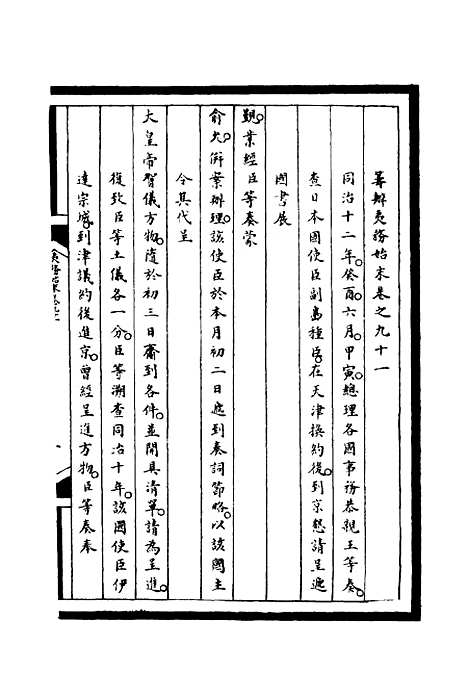 籌辦夷務始末卷之九十一
同治十二年。癸酉。六月。甲寅。總理各國事務恭親王等奏。
查日本國使臣副島種臣。在天津換約後。到京懇請呈遞
國書。展
覲。業經臣等奏蒙
俞允。併案辦理。該使臣於本月初二日遞到奏詞節略。以該國主
令其代呈
大皇帝賀儀方物。隨於初三日齎到各件。並開具清單。請為呈進。
復致臣等土儀各一分。臣等溯查同治十年。該國使臣伊
達宗城。到津議約後進京。曾經呈進方物。臣等奏奉
夷務始末卷九一